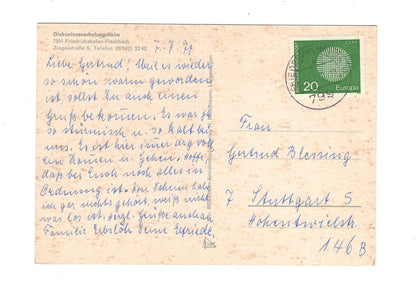 Diakonissenerholungsheim
7991 Friedrichshafen-Fischbach
Ziegelstraße 5, Telefon (07541) 22 42
7. 7. 70
Liebe Gertrud! Weil es wieder
so schön warm geworden
ist, sollst Du auch einen
Gruß bekommen. Es war ja
so stürmisch u. so kalt bei
uns. Es ist hier immer arg voll
ein Kommen u. Gehen. Hoffe,
daß bei Euch noch alles in
Ordnung ist. Von habe
ich gar nichts gehört, weiß nicht
was los ist. Herzl. Grüße auch an
Familie Deine Elfriede.
20 Europa
799
Frau
Gertrud Blessing
7 Stuttgart 5
Hohentwielstr.
146 B